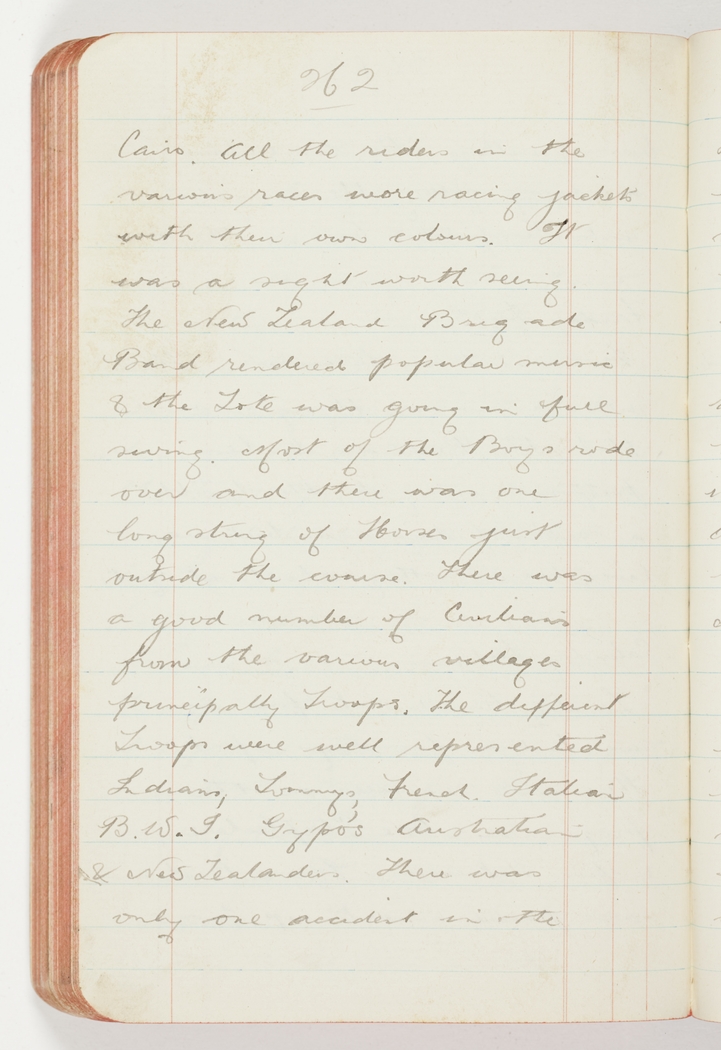 262
Cairo. All the riders in the
various races wore racing jackets
with their own colours. It
was a sight worth seeing.
The New Zealand Brigade
Band rendered popular music
& the Tote was going in full
swing. Most of the Boys rode
over and there was one
long string of Horses just
outside the course. There was
a good number of Civilians
from the various villages
principally Troops. The different
Troops were well represented
Indians, Tommys, French. Italian
B.W.I. Gypo's Australian
& New Zealanders. There was
only one accident in the